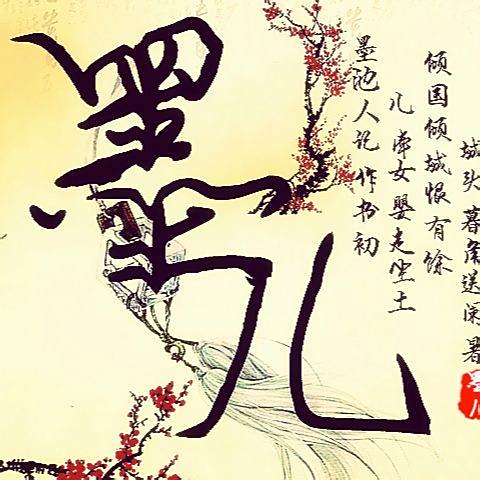 墨儿
城头暮角送闲暑
倾国倾城恨有馀
儿帝女婴走尘土
墨池人记作书初